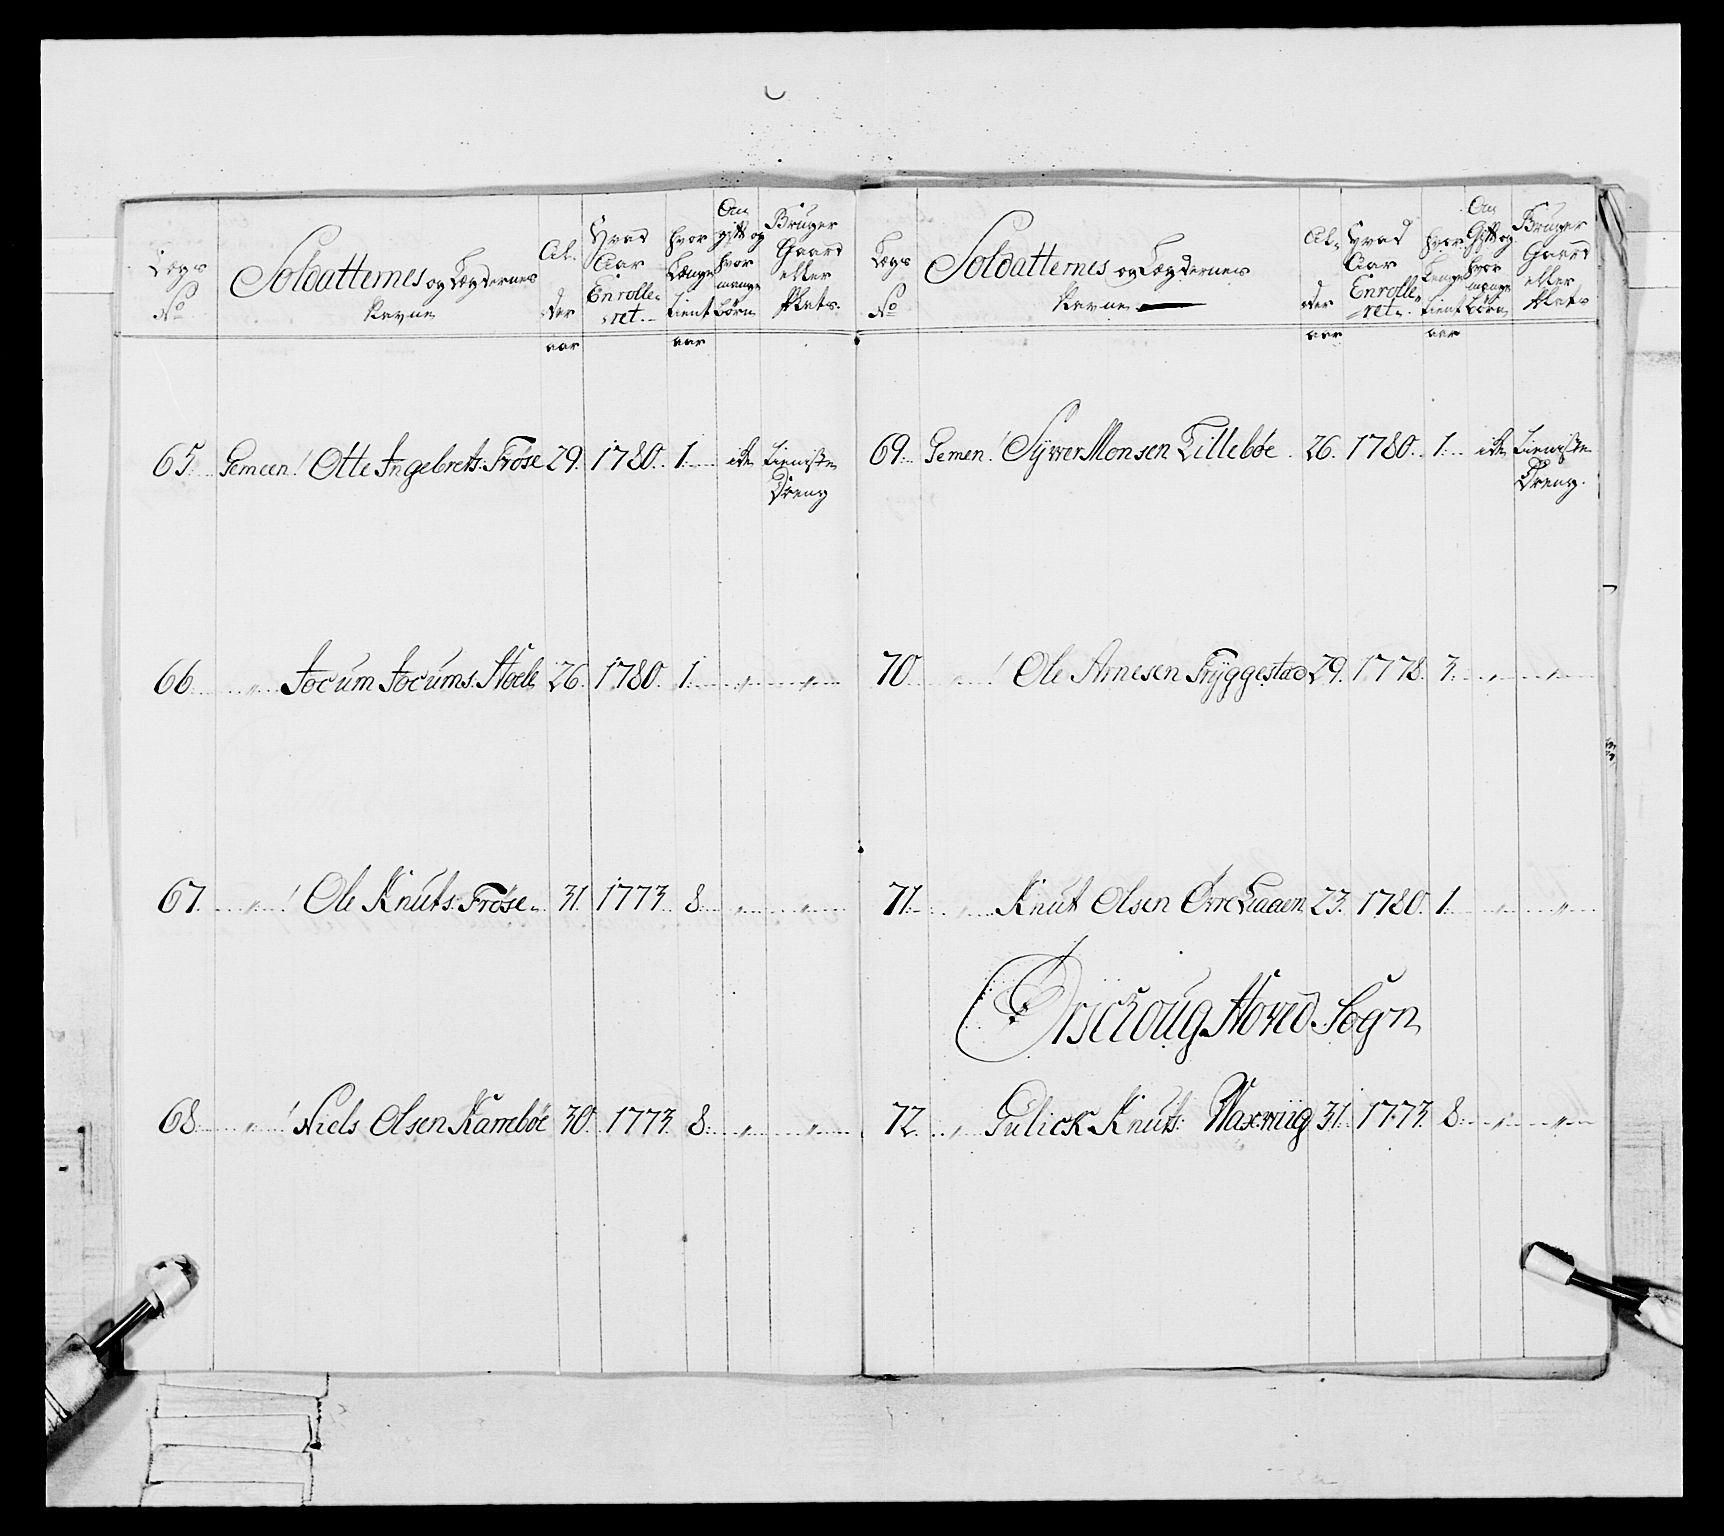 Lægs No Soldatternes og Lægdernes Navne Al-der aar Hvad Aar Enrolle-ret hvor Længe tient aar Om gift og hvor mange Børn Bruger Gaard eller Plads
65. Gemeen Otte Ingebrets. Frøse 29. 1780. 1. ike Tieniste
Dreng
66 " Jocum Jocums. Hoele 26. 1780. 1. " "
67. " Ole Knuts. Frøse 31. 1773. 8. " "
68 " Niels Olsen Karrebøe 30. 1773. 8. " "
Lægs No Soldatternes og Lægdernes Navne Al-der aar Hvad Aar Enrolle-ret hvor Længe tient aar Om Gift og hvor mange Børn Bruger Gaard eller Plads
69. Gemen. Syver Monsen Lillebøe 26. 1780. 1. ike Tieniste
Dreng.
70 " Ole Arnesen Fryggestad 29. 1778. 3. " "
71. " Knut Olsen 23. 1780. 1. " "
Hoved Sogn
72. " Gulick Knuts: 31. 1773. 8. " "